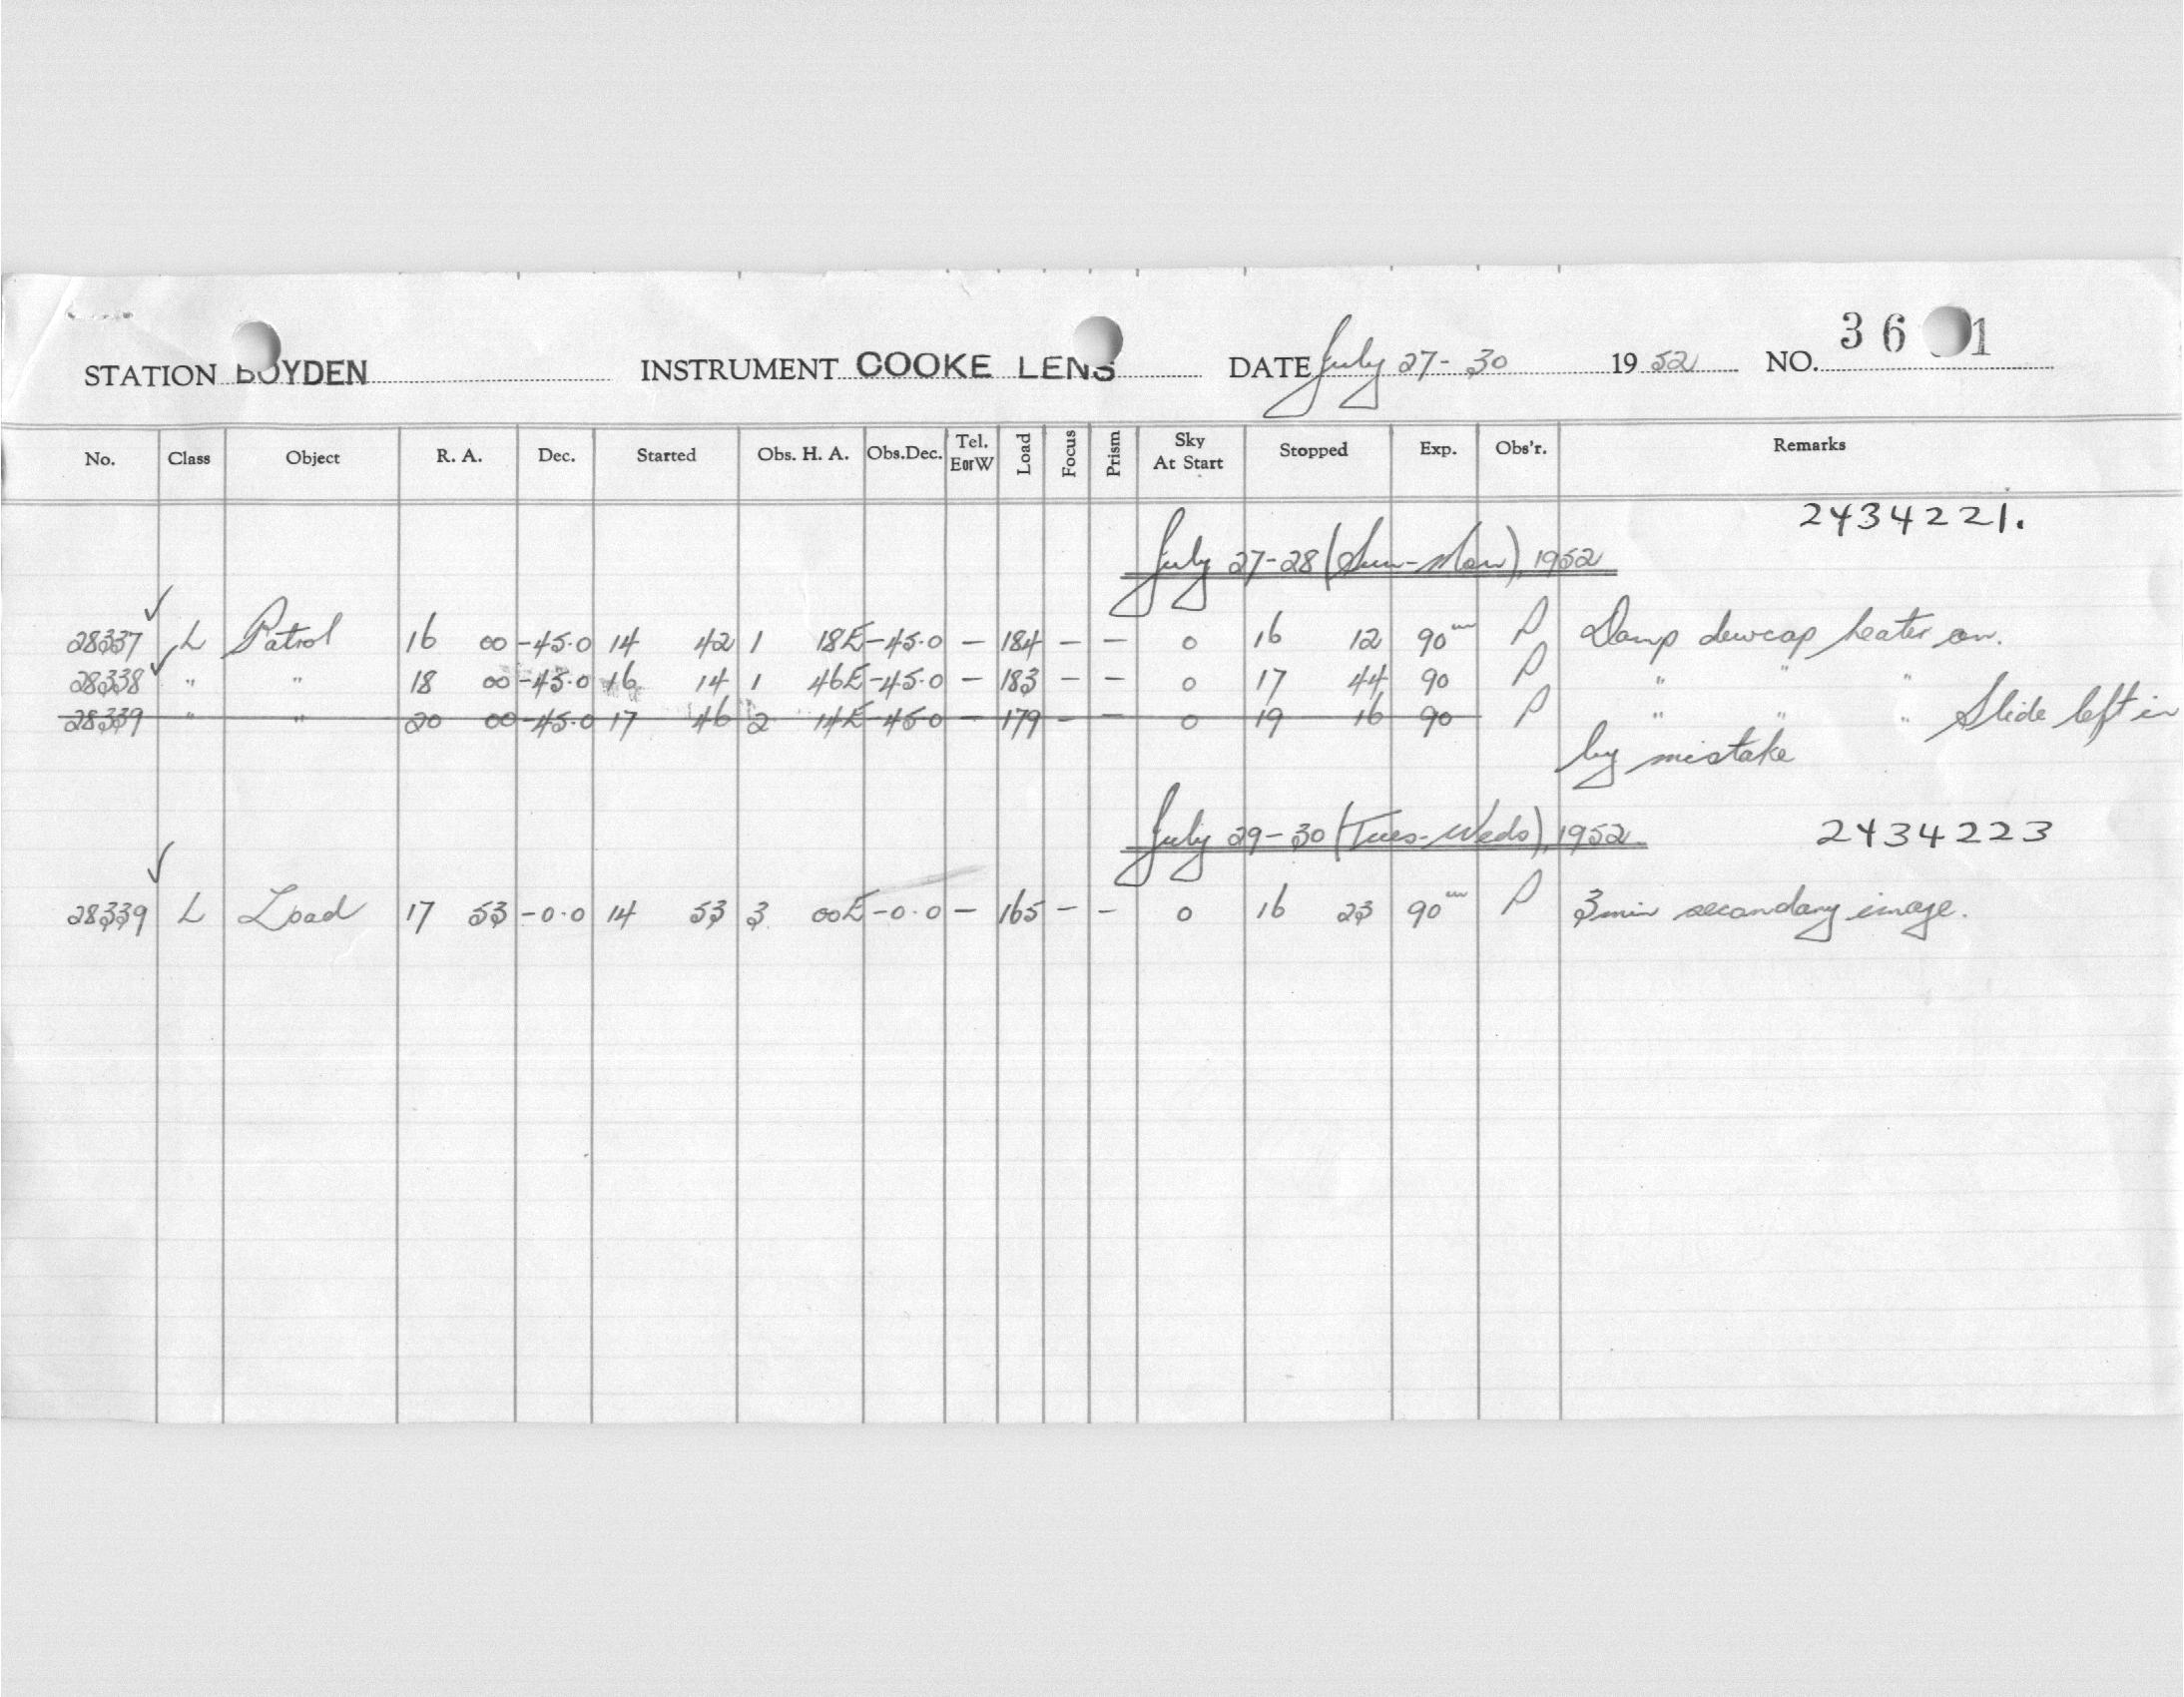 STATION BOYDEN INSTRUMENT COOKE LENS DATE July 27-30 1952 NO. 36 1
No. Class Object R. A. Dec. Started Obs. H. A. Obs.Dec. Tel. E or W Load Focus Prism Sky At Start Stopped Exp. Obs'r. Remarks
2434221.
July 27-28 (Sun-Mon), 1952
28337 L Patrol 16 00 -45.0 14 42 1 18E -45.0 — 184 - — 0 16 12 90m P Damp dewcap heater on.
28338 " " 18 00 -45.0 16 14 1 46E -45.0 - 183 - — 0 17 44 90 P " " "
28339 " " 20 00 -45.0 17 46 2 14E -45.0 — 179 - — 0 19 16 90 P " " " Slide left in
by mistake
July 29-30 (Tues-Weds), 1952. 2434223
28339 L Load 17 53 -0.0 14 53 3 00E -0.0 — 165 - - 0 16 23 90m P 3 min secondary image.